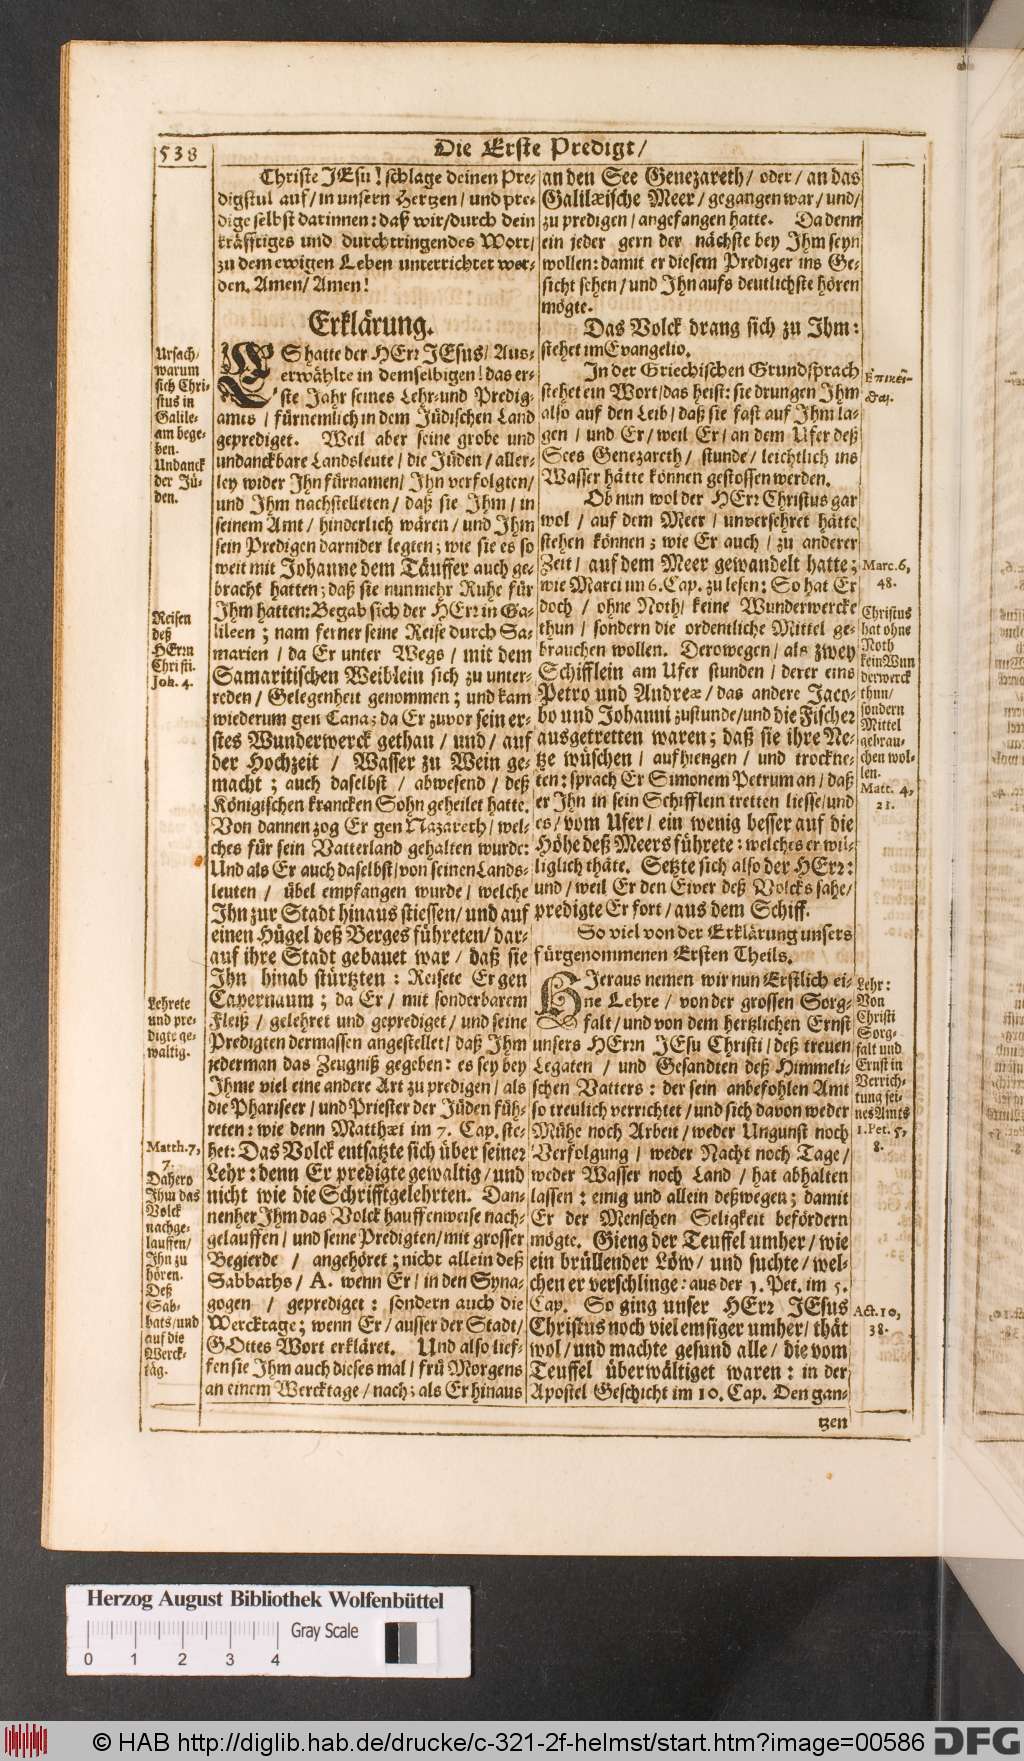 538
Die Erste Predigt/
Christe JEsu! schlage deinen Pre-
digstul auf/ in unsern Hertzen/ und pre-
dige selbst darinnen: daß wir/ durch dein
kräfftiges und durchtringendes Wort/
zu dem ewigen Leben unterrichtet wer-
den. Amen/ Amen!
Erklärung.
ES hatte der HErr JEsus/ Aus-
erwählte in demselbigen! das er-
ste Jahr seines Lehr- und Predig-
amts / fürnemlich in dem Jüdischen Land
geprediget. Weil aber seine grobe und
undanckbare Landsleute/ die Jüden/ aller-
ley wider Ihn fürnamen/ Ihn verfolgten/
und Ihm nachstelleten/ daß sie Ihm/ in
seinem Amt/ hinderlich wären/ und Ihm
sein Predigen darnider legten; wie sie es so
weit mit Johanne dem Täuffer auch ge-
bracht hatten; daß sie nunmehr Ruhe für
Ihm hatten: Begab sich der HErr in Ga-
lileen; nam ferner seine Reise durch Sa-
marien / da Er unter Wegs / mit dem
Samaritischen Weiblein sich zu unter-
reden/ Gelegenheit genommen; und kam
wiederum gen Cana; da Er zuvor sein er-
stes Wunderwerck gethan / und / auf
der Hochzeit / Wasser zu Wein ge-
macht; auch daselbst / abwesend / deß
Königischen krancken Sohn geheilet hatte.
Von dannen zog Er gen Nazareth/ wel-
ches für sein Vatterland gehalten wurde:
Und als Er auch daselbst/ von seinen Lands-
leuten / übel empfangen wurde / welche
Ihn zur Stadt hinaus stiessen/ und auf
einen Hügel deß Berges führeten/ dar-
auf ihre Stadt gebauet war / daß sie
Ihn hinab stürtzten: Reisete Er gen
Capernaum; da Er / mit sonderbarem
Fleiß / gelehret und geprediget / und seine
Predigten dermassen angestellet/ daß Ihm
jederman das Zeugniß gegeben: es sey bey
Ihme viel eine andere Art zu predigen / als
die Phariseer / und Priester der Jüden füh-
reten: wie denn Matthæi im 7. Cap. ste-
het: Das Volck entsatzte sich über seiner
Lehr: denn Er predigte gewaltig/ und
nicht wie die Schrifftgelehrten. Dan-
nenher Ihm das Volck hauffenweise nach-
gelauffen/ und seine Predigten/ mit grosser
Begierde / angehöret; nicht allein deß
Sabbaths/ A. wenn Er/ in den Syna-
gogen / geprediget: sondern auch die
Wercktage; wenn Er/ ausser der Stadt/
GOttes Wort erkläret. Und also lief-
fen sie Ihm auch dieses mal / frü Morgens
an einem Wercktage / nach; als Er hinaus
Ursach/
warum
sich Chri-
stus in
Galile-
am bege-
ben.
Undanck
der Jü-
den.
Reisen
deß
HErrn
Christi.
Joh. 4.
Lehrete
und pre-
digte ge-
waltig.
Matth. 7,
7.
Dahero
Ihm das
Volck
nachge-
lauffen/
Ihn zu
hören.
Deß
Sab-
bats/ und
auf die
Werck-
täg.
an den See Genezareth/ oder/ an das
Galilæische Meer / gegangen war / und/
zu predigen / angefangen hatte. Da denn
ein jeder gern der nächste bey Ihm seyn
wollen: damit er diesem Prediger ins Ge-
sicht sehen / und Ihn aufs deutlichste hören
mögte.
Das Volck drang sich zu Ihm:
stehet im Evangelio.
In der Griechischen Grundsprach
stehet ein Wort/ das heist: sie drungen Ihm
also auf den Leib / daß sie fast auf Ihm la-
gen / und Er / weil Er / an dem Ufer deß
Sees Genezareth/ stunde/ leichtlich ins
Wasser hätte können gestossen werden.
Ob nun wol der HErr Christus gar
wol / auf dem Meer / unversehret hätte
stehen können; wie Er auch / zu anderer
Zeit/ auf dem Meer gewandelt hatte;
wie Marci im 6. Cap. zu lesen: So hat Er
doch / ohne Noth/ keine Wunderwercke
thun / sondern die ordentliche Mittel ge-
brauchen wollen. Derowegen/ als zwey
Schifflein am Ufer stunden / derer eins
Petro und Andreæ / das andere Jaco-
bo und Johanni zustunde/ und die Fischer
ausgetretten waren; daß sie ihre Ne-
tze wüschen / aufhiengen / und trockne-
ten: sprach Er Simonem Petrum an / daß
er Ihn in sein Schifflein tretten liesse/ und
es/ vom Ufer/ ein wenig besser auf die
Höhe deß Meers führete: welches er wil-
liglich thäte. Setzte sich also der HErr:
und/ weil Er den Eiver deß Volcks sahe/
predigte Er fort/ aus dem Schiff.
So viel von der Erklärung unsers
fürgenommenen Ersten Theils.
HIeraus nemen wir nun Erstlich ei-
ne Lehre / von der grossen Sorg-
falt / und von dem hertzlichen Ernst
unsers HErrn JEsu Christi/ deß treuen
Legaten / und Gesandten deß Himmeli-
schen Vatters: der sein anbefohlen Amt
so treulich verrichtet / und sich davon weder
Mühe noch Arbeit/ weder Ungunst noch
Verfolgung / weder Nacht noch Tage/
weder Wasser noch Land / hat abhalten
lassen: einig und allein deßwegen; damit
Er der Menschen Seligkeit befördern
mögte. Gieng der Teuffel umher/ wie
ein brüllender Löw/ und suchte/ wel-
chen er verschlinge: aus der 1. Pet. im 5.
Cap. So ging unser HErr JEsus
Christus noch viel emsiger umher/ thät
wol/ und machte gesund alle/ die vom
Teuffel überwältiget waren: in der
Apostel Geschicht im 10. Cap. Den gan-
tzen
Marc. 6,
48.
Christus
hat ohne
Noth
kein Wun
derwerck
thun/
sondern
Mittel
gebrau-
chen wol-
len.
Matt. 4,
21.
Lehr:
Von
Christi
Sorg-
falt und
Ernst in
Verrich-
tung sei-
nes Amts
1. Pet. 5,
8.
Act. 10,
38.
Herzog August Bibliothek Wolfenbüttel
Gray Scale
0 1 2 3 4
© HAB http://diglib.hab.de/drucke/c-321-2f-helmst/start.htm?image=00586
DFG